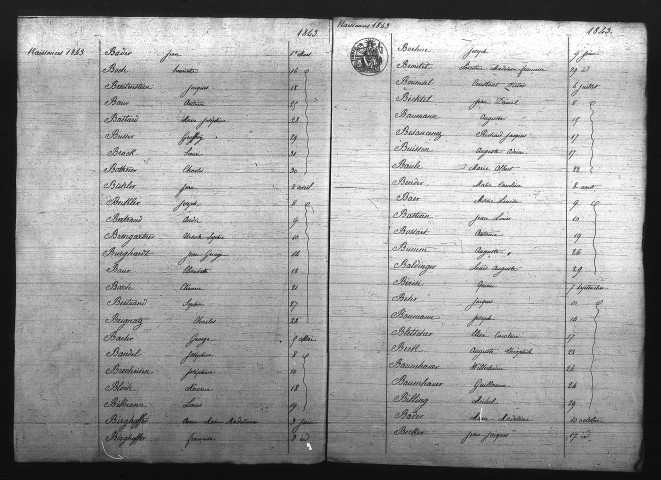 1843.
Naissances 1843 Bader Jean 1er Mars
Bosch Henriette 16
Breitenstein Jacques 18
Baur Antoine 25
Battard Marie Joséphine 28
Busser Geoffroy 29
Brack 30
Bothner Charles 30
Bickler Jean 2 avril
Buckler Joseph 8
Bertrand 9
Baumgartner Ursule Sophie 10
Burghardt Jean George 16
Baur Elisabeth 18
Bosch Etienne 21
Bertrand Sophie 27
Beignatz Charles 28
Baehr George 7 Mai
Bandel Joséphine 8
Brecheisen Joséphine 10
Bloch Maurice 18
Bellmann Louis 19
Berghoffer Anne Marie Madeleine 3 Juin
Berghoffer Françoise 3 id
Naissances 1843 1843.
Boehm Joseph 9 Juin
Bientzlet Madeleine Françoise 29 id
Constant Victor 6 Juillet
Bechtel Jean Daniel 8
Baumann Auguste 15
Besancenez Richard Jacques 17
Buisson Auguste 17
Baule Marie Albert 22
Bender Marie Caroline 2 aout
Baer Marie Louise 9
Bastian Jean Louis 10
Bossart Antoine 19
Bumm Auguste 26
Baldinger Louis Auguste 29
7 Septembre
Beter Jacques 10
Baumann Joseph 16
Bletscher Elise Caroline 17
Beck Auguste 23
Baumhauer Wilhelmine 26
Baumhauer Guillaume 26
Billing Michel 29
Bader Marie Madeleine 10 octobre
Becker Jean Jacques 17 id